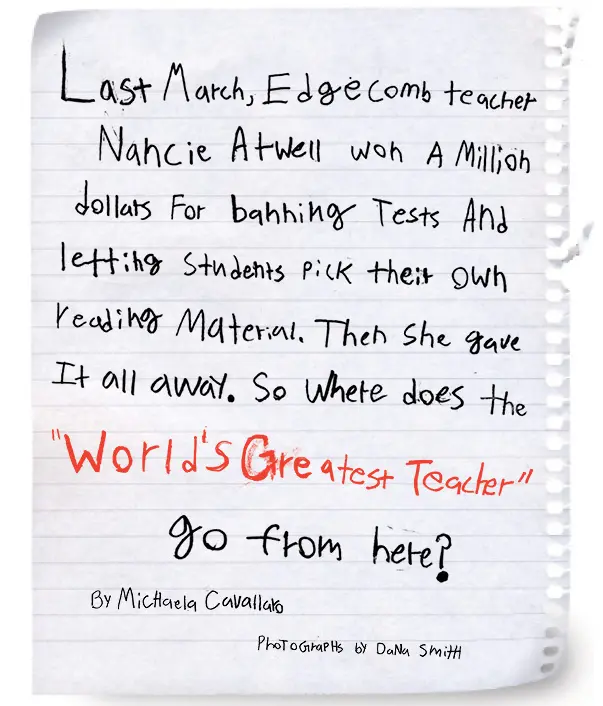 Last March, Edgecomb teacher
Nancie Atwell won A Million
dollars For banning Tests And
letting students pick their own
reading Material. Then she gave
It all away. So Where does the
"World's Greatest Teacher"
go from here?
By Michaela Cavallaro
PHOTOGRAPHS by DaNa Smith